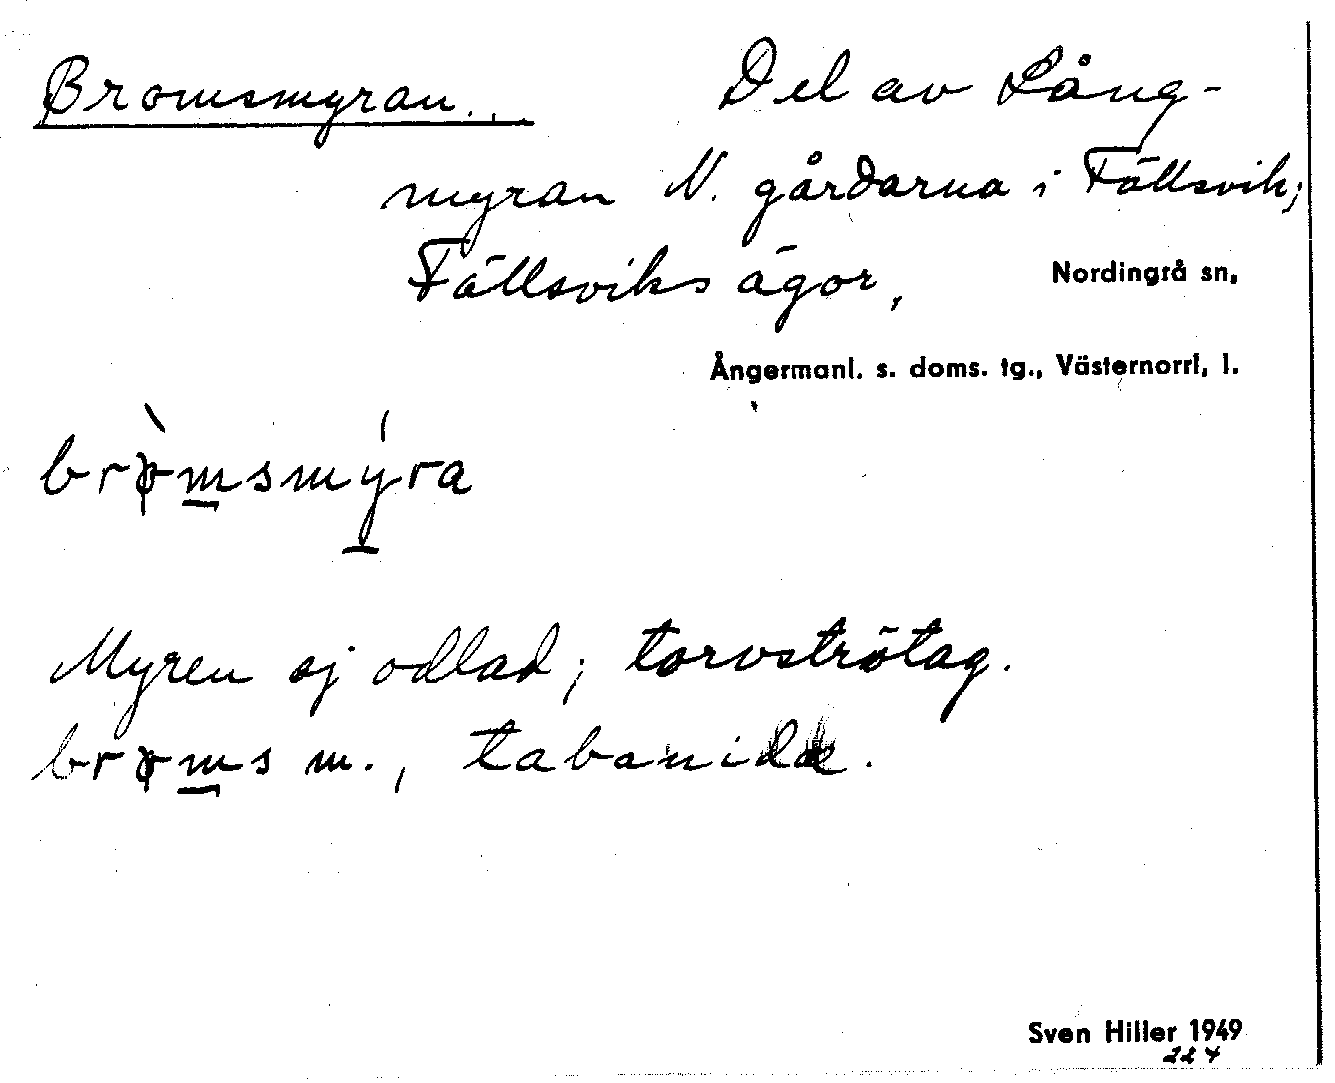 Bromsmyran... Del av Lång-
myran N. gårdarna i Fällsvik;
Fällsviks ägor, Nordingrå sn,
Ångermanl. s. doms. tg., Västernorrl, l.
bròmsmýra
Myren ej odlad; torvströtag.
broms m., tabanidæ.
Sven Hiller 1949
224